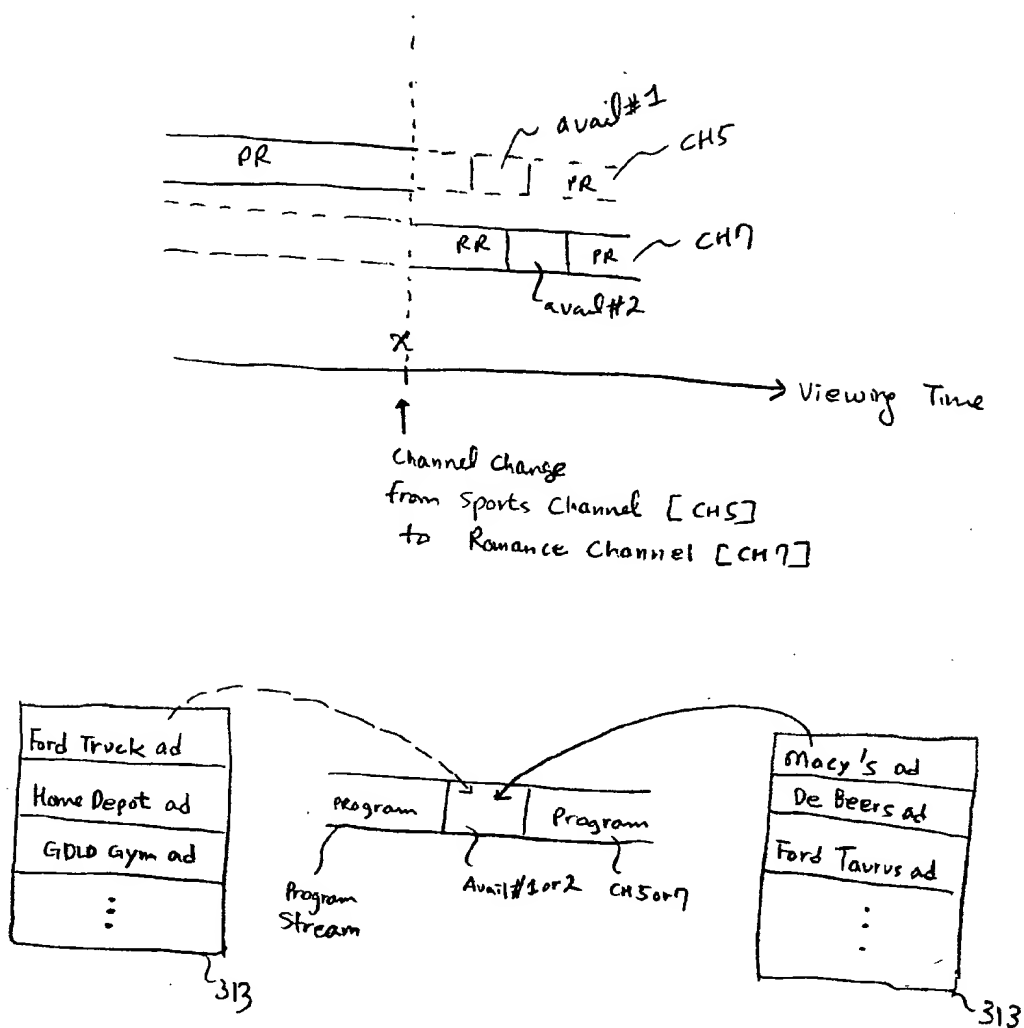 avail#1
PR
CH5
PR
RR
PR
CH7
avail#2
x
Viewing Time
Channel Change
from Sports Channel [CH5]
to Romance Channel [CH7]
Ford Truck ad
Home Depot ad
GOLD Gym ad
313
Program
Program
Program
Stream
Avail#1or2
CH5or7
Macy's ad
De Beers ad
Ford Taurus ad
313